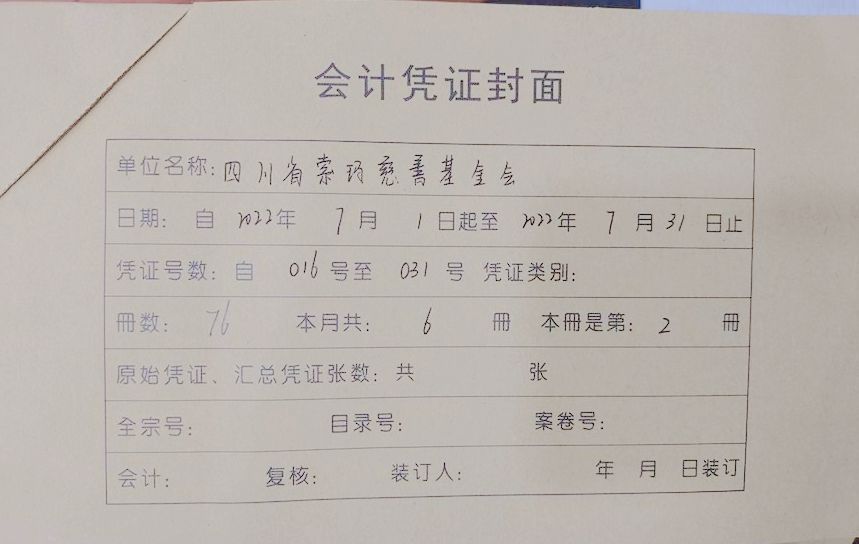 会计凭证封面
单位名称: 四川省索玛慈善基金会
日期: 自 2022年 7月 1日起至 2022年 7月31日止
凭证号数: 自 016号至 031号 凭证类别:
冊数: 76 本月共: 6 冊 本冊是第: 2 冊
原始凭证、汇总凭证张数: 共 张
全宗号: 目录号: 案卷号:
会计: 复核: 装订人: 年 月 日装订